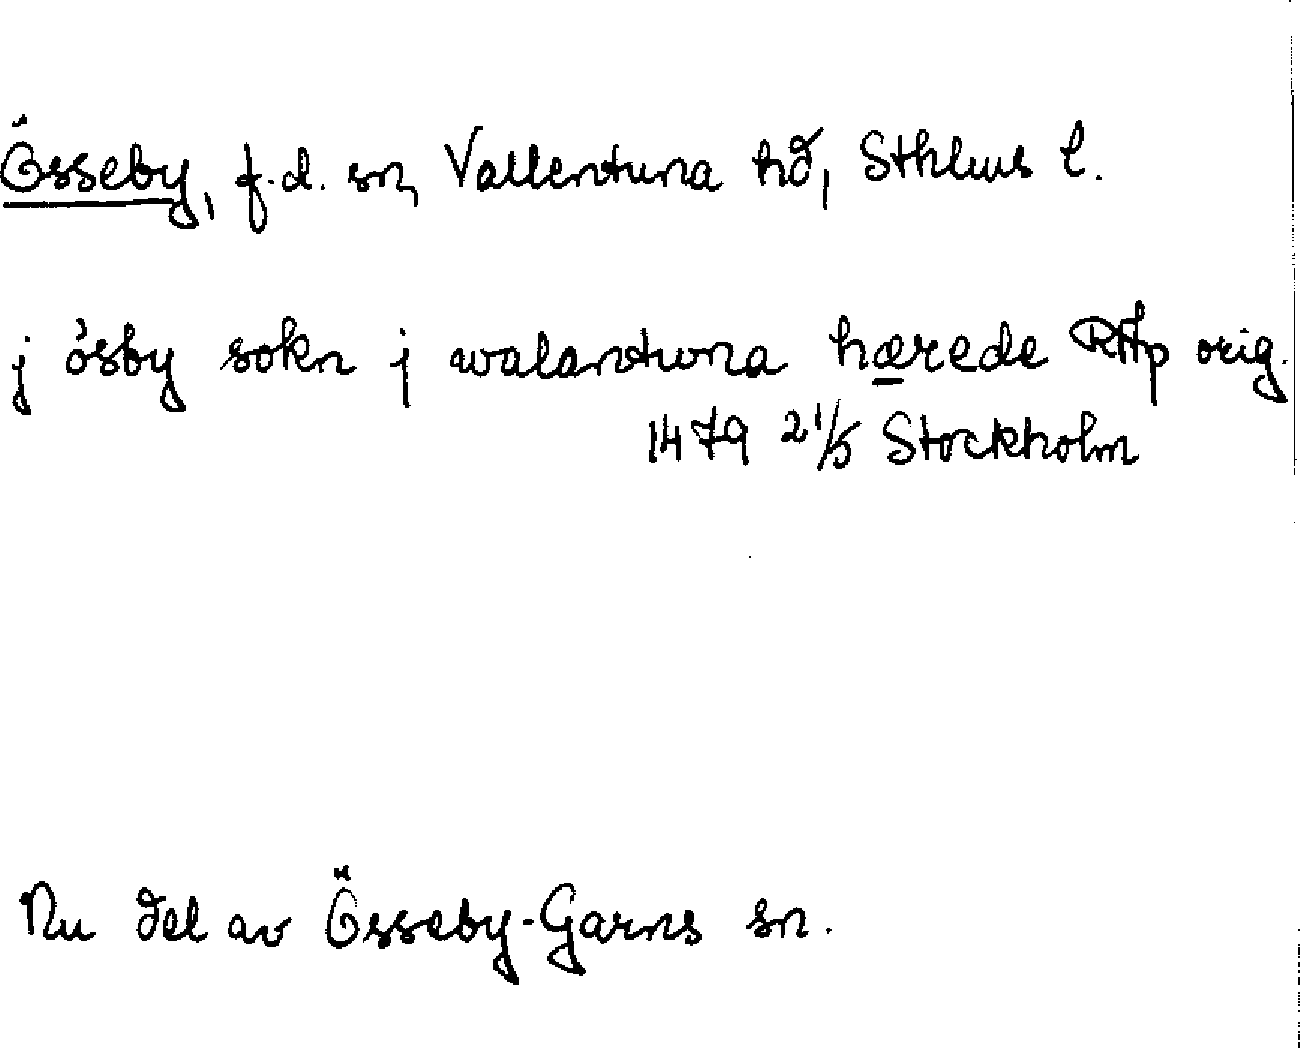 Össeby, f.d. sn, Vallentuna hd, Sthlms l.
j ósby sokn j walantwna hærede RAp orig.
1479 21/5 Stockholm
Nu del av Össeby-Garns sn.